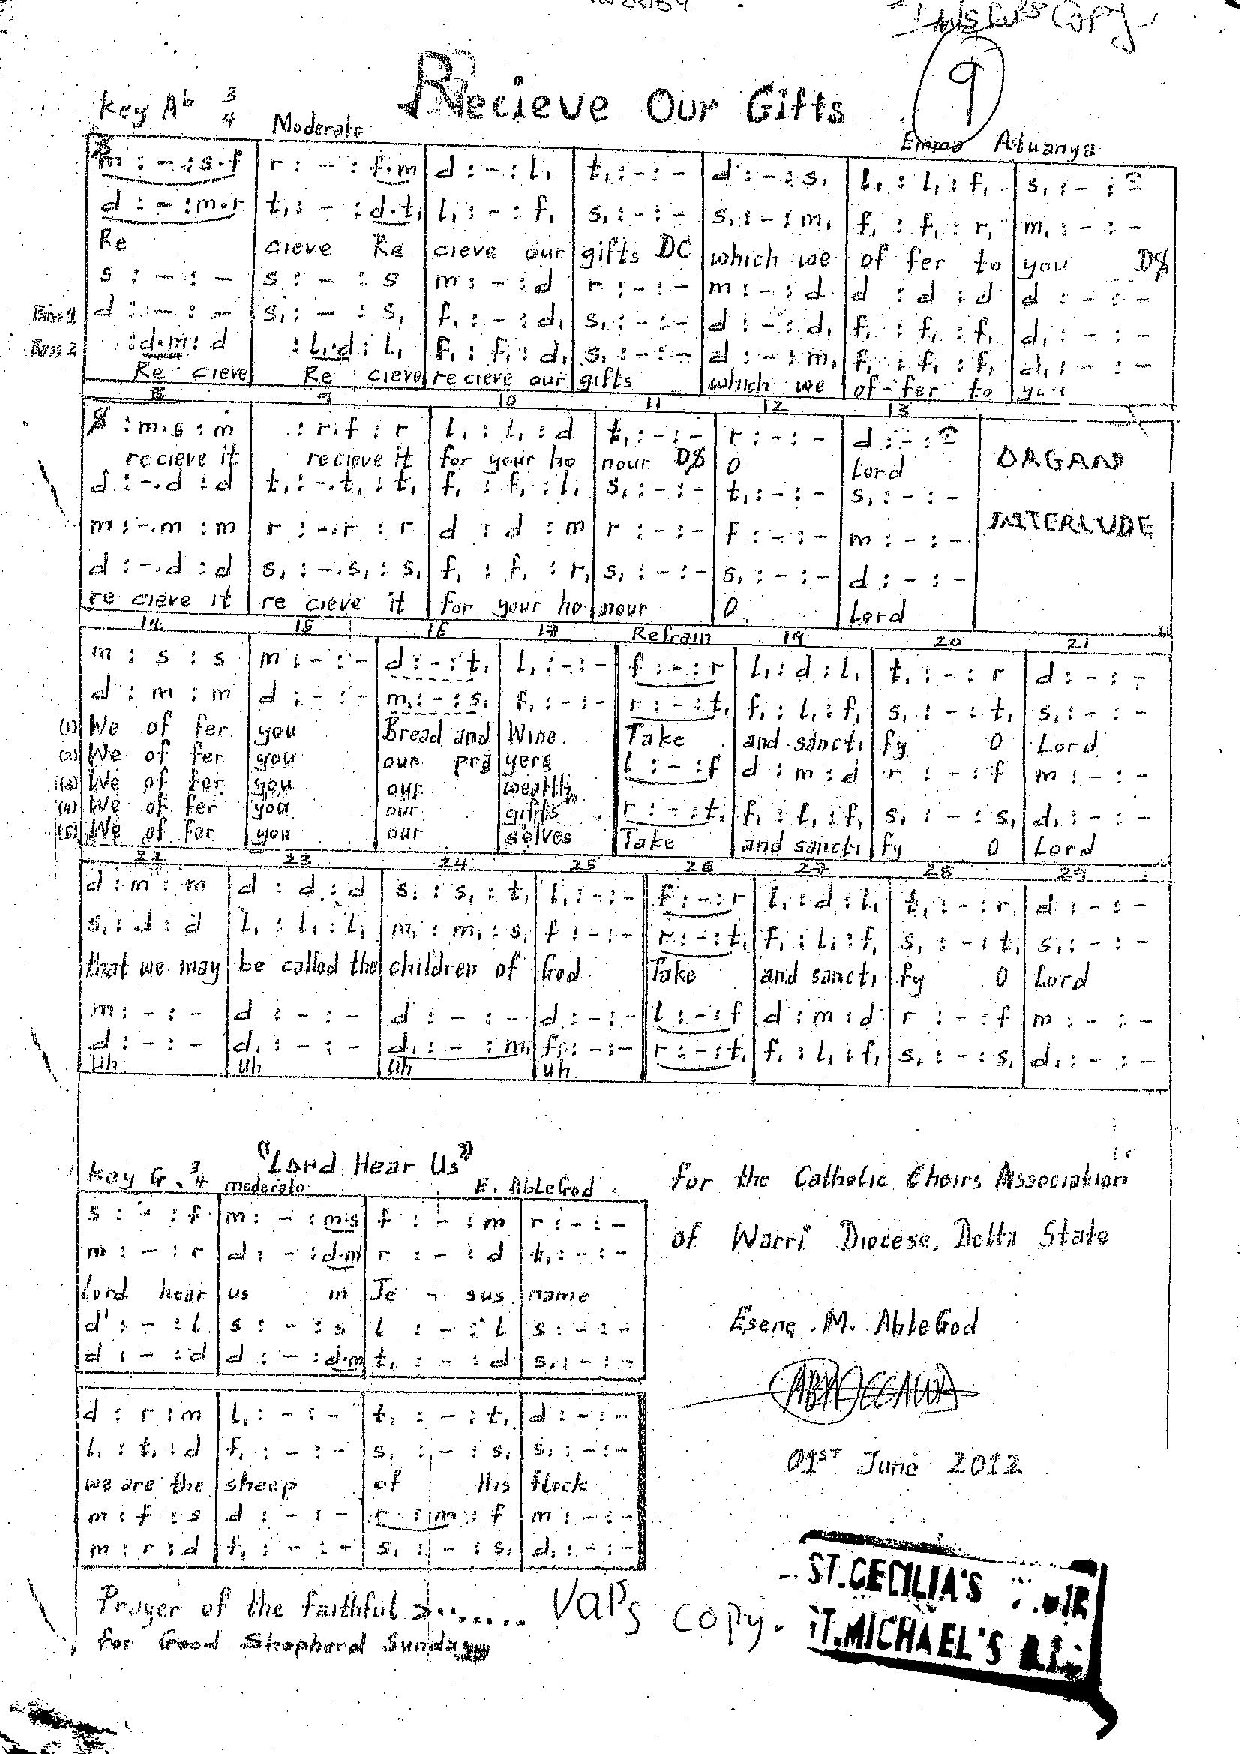 copy
Recieve Our Gifts
9
Key Ab 3/4
Moderate
Emma Atuanya
m : - : s.f | r : - : f.m | d : - : l, | t, : - : - | d : - : s, | l, : l, : f, | s, : - :
d : - : m.r | t, : - : d.t, | l, : - : f, | s, : - : - | s, : - : m, | f, : f, : r, | m, : - : -
Re cieve Re cieve our gifts DC which we of fer to you D$
s : - : - | s : - : s | m : - : d | r : - : - | m : - : d | d : d : d | d : - : -
Bass 1 d : - : - | s, : - : s, | f, : - : d, | s, : - : - | d : - : d, | f, : f, : f, | d, : - : -
Bass 2 : d.m : d | : l,.d : l, | f, : f, : d, | s, : - : - | d : - : m, | f, : f, : f, | d, : - : -
Re cieve Re cieve recieve our gifts which we of-fer to you
8 9 10 11 12 13
$ : m.s : m | : r.f : r | l, : l, : d | t, : - : - | r : - : - | d : - :
recieve it recieve it for your ho nour D$ O Lord
d : -.d : d | t, : -.t, : t, | f, : f, : l, | s, : - : - | t, : - : - | s, : - : -
m : -.m : m | r : -.r : r | d : d : m | r : - : - | f : - : - | m : - : -
d : -.d : d | s, : -.s, : s, | f, : f, : r, | s, : - : - | s, : - : - | d : - : -
re cieve it re cieve it for your ho nour O Lord
ORGAN
INTERLUDE
14 15 16 17 Refrain 19 20 21
m : s : s | m : - : - | d : - : t, | l, : - : - | f : - : r | l, : d : l, | t, : - : r | d : - : -
d : m : m | d : - : - | m, : - : s, | f, : - : - | r : - : t, | f, : l, : f, | s, : - : t, | s, : - : -
(1) We of fer you Bread and Wine. Take and sancti fy O Lord
(2) We of fer you our pra yers
l : - : f | d : m : d | r : - : f | m : - : -
We of fer you our wealth
(4) We of fer you our gifts
r : - : t, | f, : l, : f, | s, : - : s, | d, : - : -
(5) We of fer you our selves Take and sancti fy O Lord
22 23 24 25 26 27 28 29
d : m : m | d : d : d | s, : s, : t, | l, : - : - | f : - : r | l, : d : l, | t, : - : r | d : - : -
s, : d : d | l, : l, : l, | m, : m, : s, | f : - : - | r : - : t, | f, : l, : f, | s, : - : t, | s, : - : -
that we may be called the children of God Take and sancti fy O Lord
m : - : - | d : - : - | d : - : - | d : - : - | l : - : f | d : m : d | r : - : f | m : - : -
d : - : - | d, : - : - | d, : - : m, | f, : - : - | r : - : t, | f, : l, : f, | s, : - : s, | d, : - : -
Uh Uh Uh Uh
"Lord Hear Us"
Key G. 3/4 moderato E. AbleGod
s : - : f | m : - : m.s | f : - : m | r : - : -
m : - : r | d : - : d.m | r : - : d | t, : - : -
Lord hear us in Je - sus name
d' : - : l | s : - : s | l : - : l | s : - : -
d : - : d | d : - : d.m | t, : - : d | s, : - : -
d : r : m | l, : - : - | t, : - : t, | d : - : -
l, : t, : d | f, : - : - | s, : - : s, | s, : - : -
we are the sheep of His flock
m : f : s | d : - : - | r : m : f | m : - : -
m : r : d | f, : - : - | s, : - : s, | d, : - : -
Prayer of the faithful
for Good Shepherd Sunday
Val's copy.
for the Catholic Choirs Association
of Warri Diocese, Delta State
Esene .M. AbleGod
01ST June 2012
ST.CECILIA'S
ST.MICHAEL'S